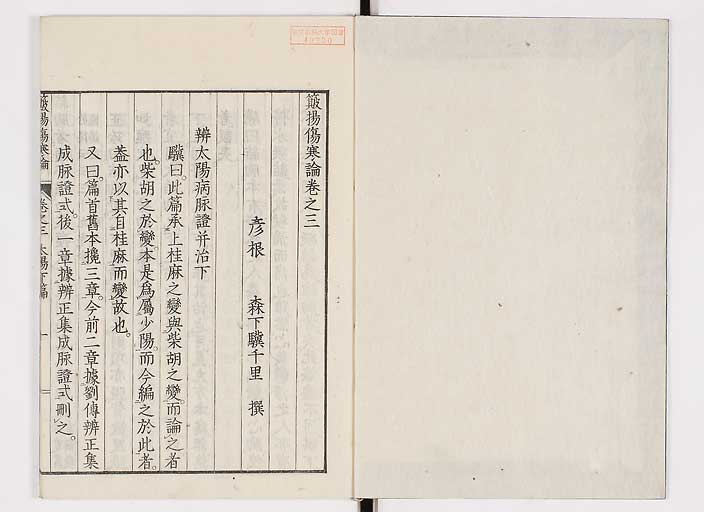 簸揚傷寒論卷之三
彦根 森下驥千里 撰
辨太陽病脉證并治下
驥曰。此篇承上桂麻之變與柴胡之變。而論之者
也。柴胡之於變。本是爲屬少陽。而今編之於此者。
蓋亦以其自桂麻而變故也。
又曰。篇首舊本攙三章。今前二章據劉傳辨正集
成脉證式。後一章據辨正集成脉證式刪之。
簸揚傷寒論 卷之三 太陽下篇 一